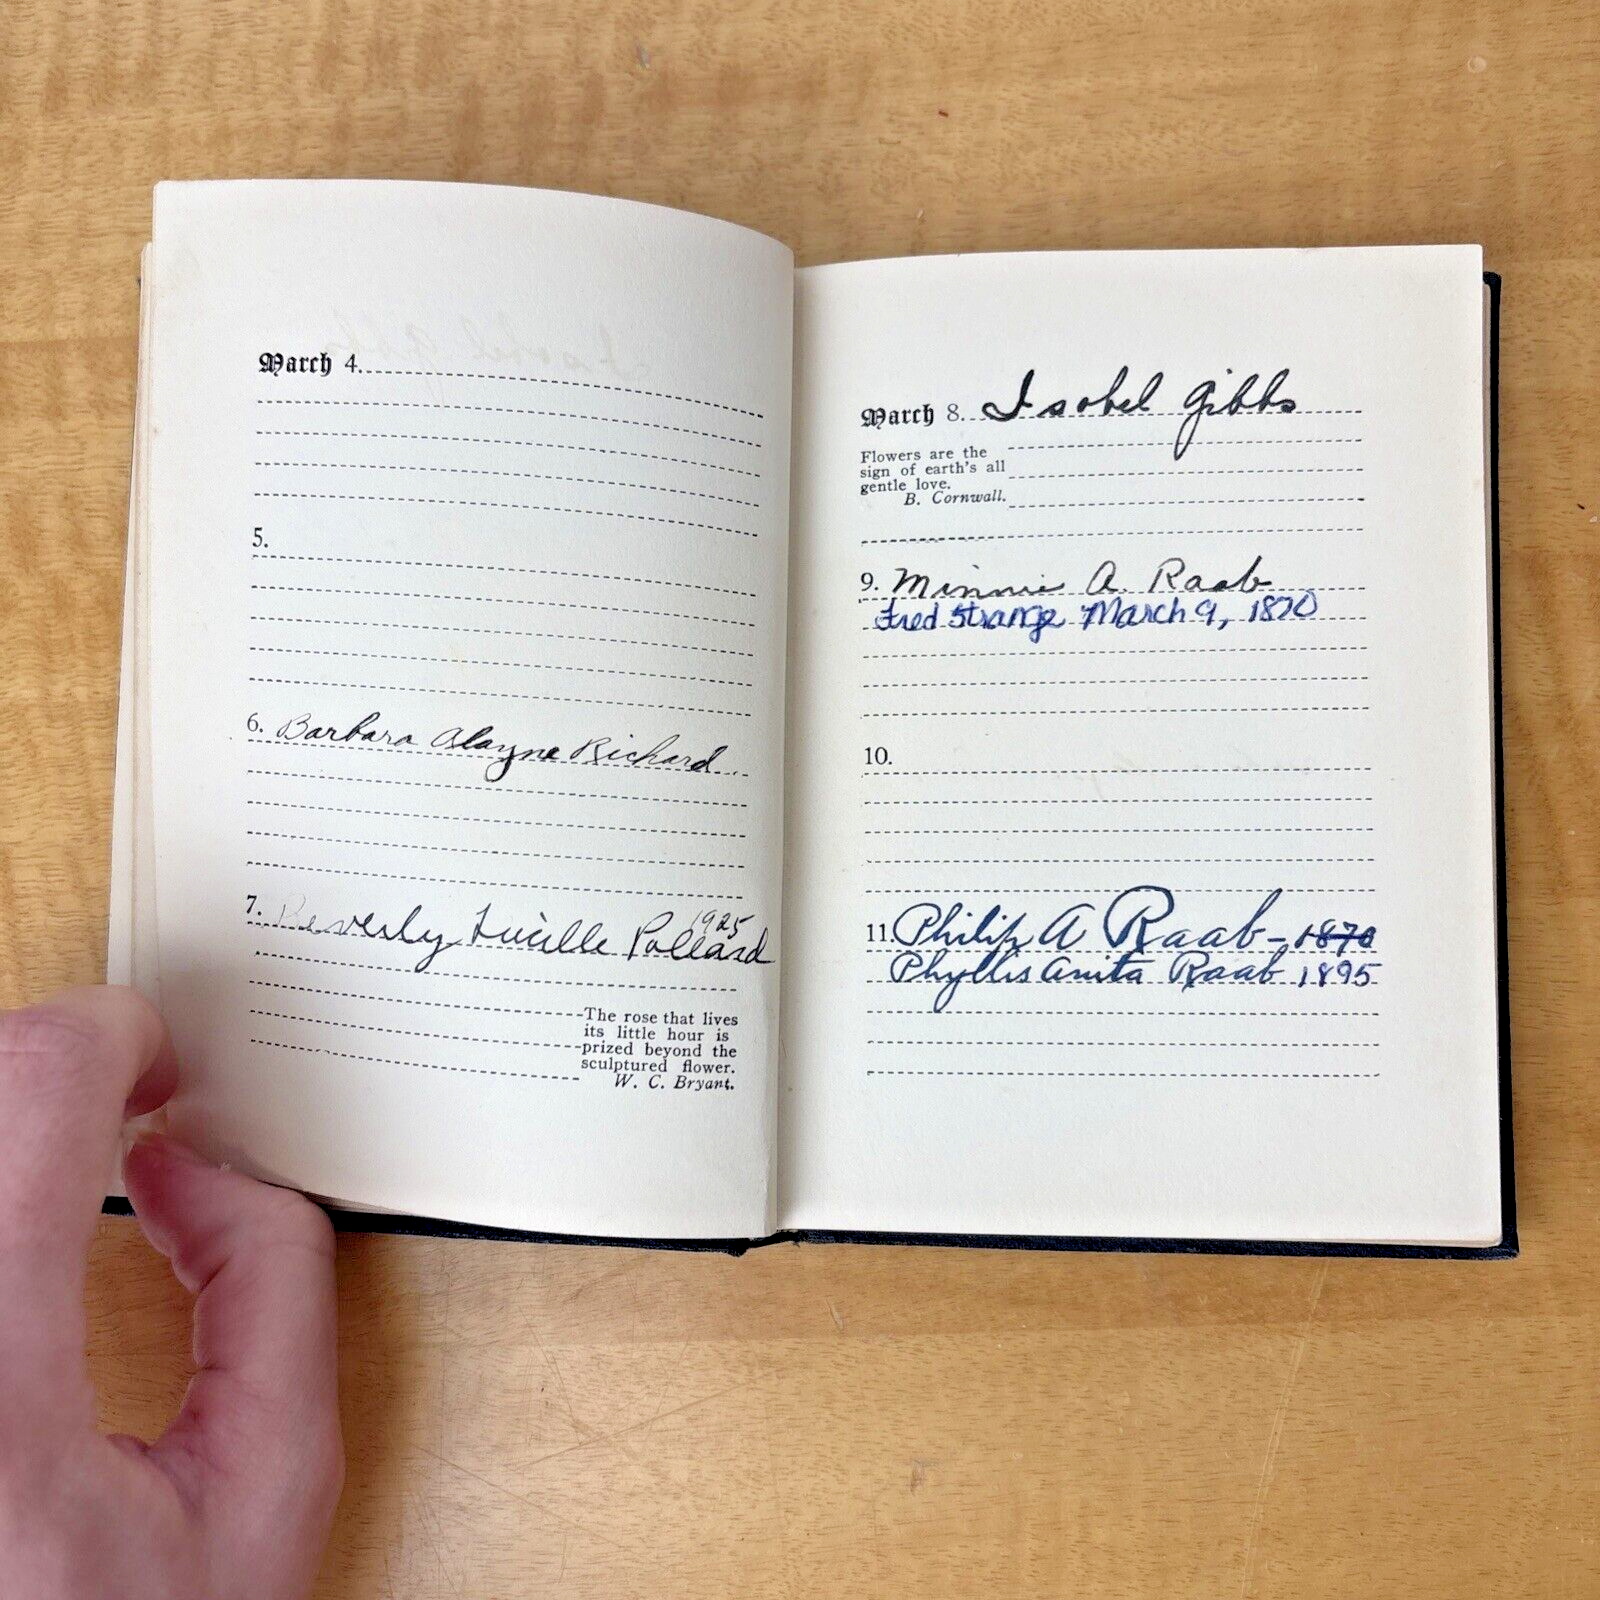 March 4.
5.
6. Barbara Alayne Richard
7. Beverly Lucille Pollard 1925
The rose that lives
its little hour is
prized beyond the
sculptured flower.
W. C. Bryant.
March 8. Isobel Gibbs
Flowers are the
sign of earth's all
gentle love.
B. Cornwall.
9. Minnie A. Raab
Fred Strange March 9, 1870
10.
11. Philip A Raab - 1870
Phyllis Anita Raab 1895